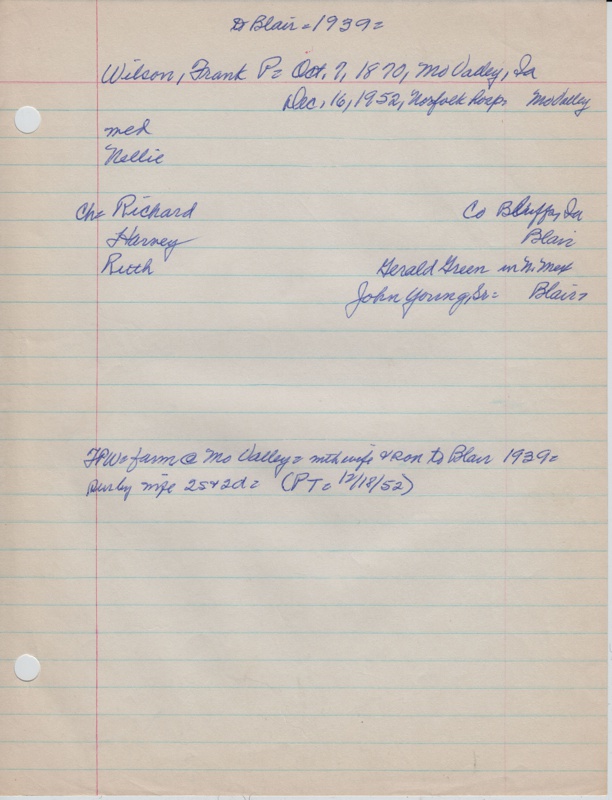 to Blair = 1939=
Wilson, Frank P= Oct. 7, 1870, Mo Valley, Ia
Dec, 16, 1952, Norfolk Hosp. Mo Valley
med
Nellie
Ch= Richard Co Bluffs, Ia
Harvey Blair
Ruth Gerald Green in N. Mex
John Young, Sr= Blair
FPW= farm @ Mo Valley= wife & son to Blair 1939=
Surby wife 2S+2d= (PT= 12/18/52)